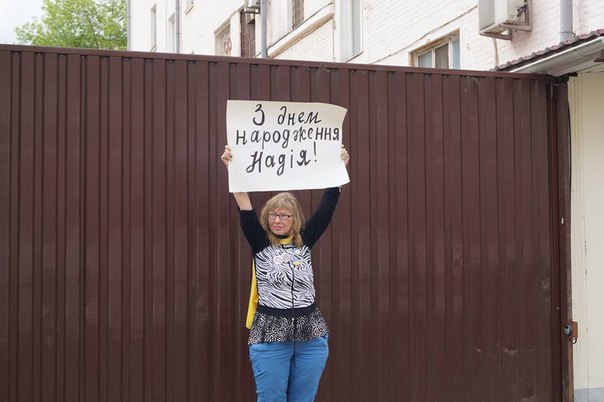 З днем
народження
Надія!